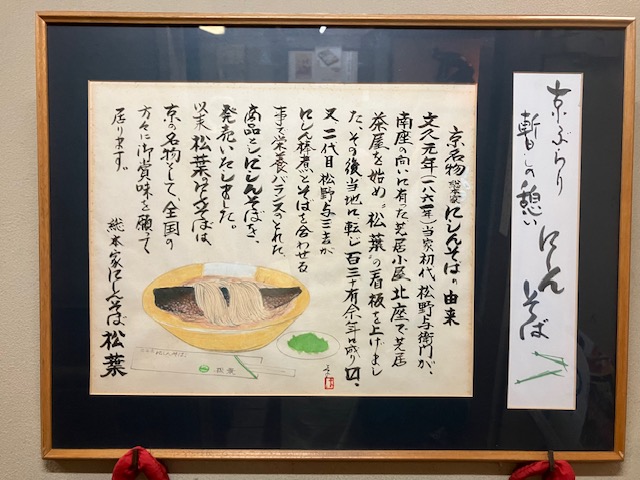 京ぶらり
暫しの憩い
にしんそば
京名物 総本家 にしんそばの由来
文久元年(一八六一年)当家初代松野与衛門が、
南座の向いに有った芝居小屋北座で芝居
茶屋を始め〝松葉〟の看板を上げまし
た、その後当地に転じ百三十有余年に成り
又二代目松野与三吉が
にしん棒煮とそばを合わせる
事で栄養バランスのとれた
商品としにしんそばを、
発売いたしました。
以来松葉のにしんそばは、
京の名物として、全国の
方々に御賞味を願って
居ります。
総本家にしんそば 松葉